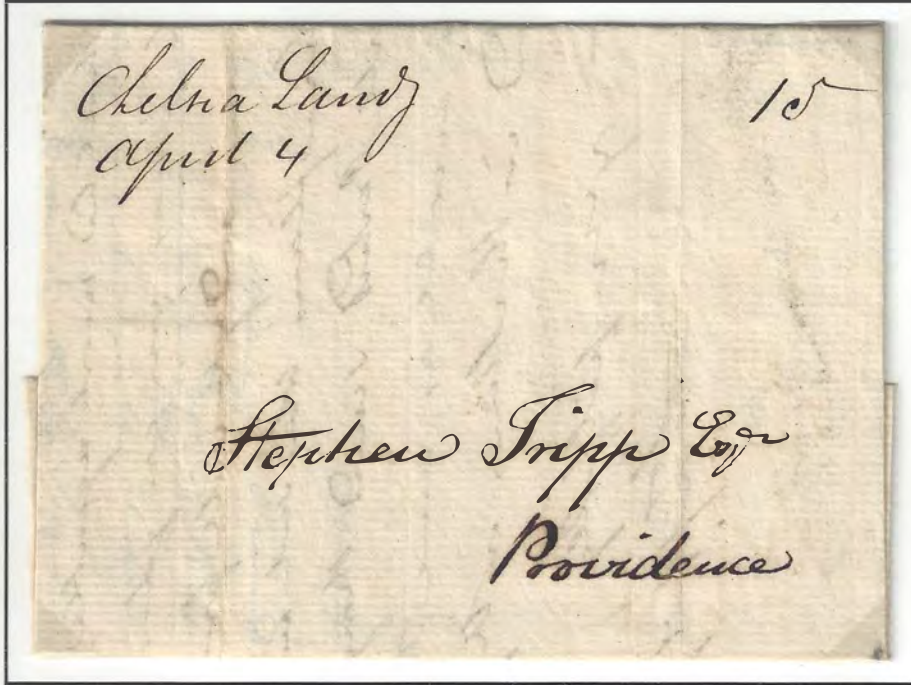 Chelsea Landg
April 4
15
Stephen Tripp Esqr
Providence